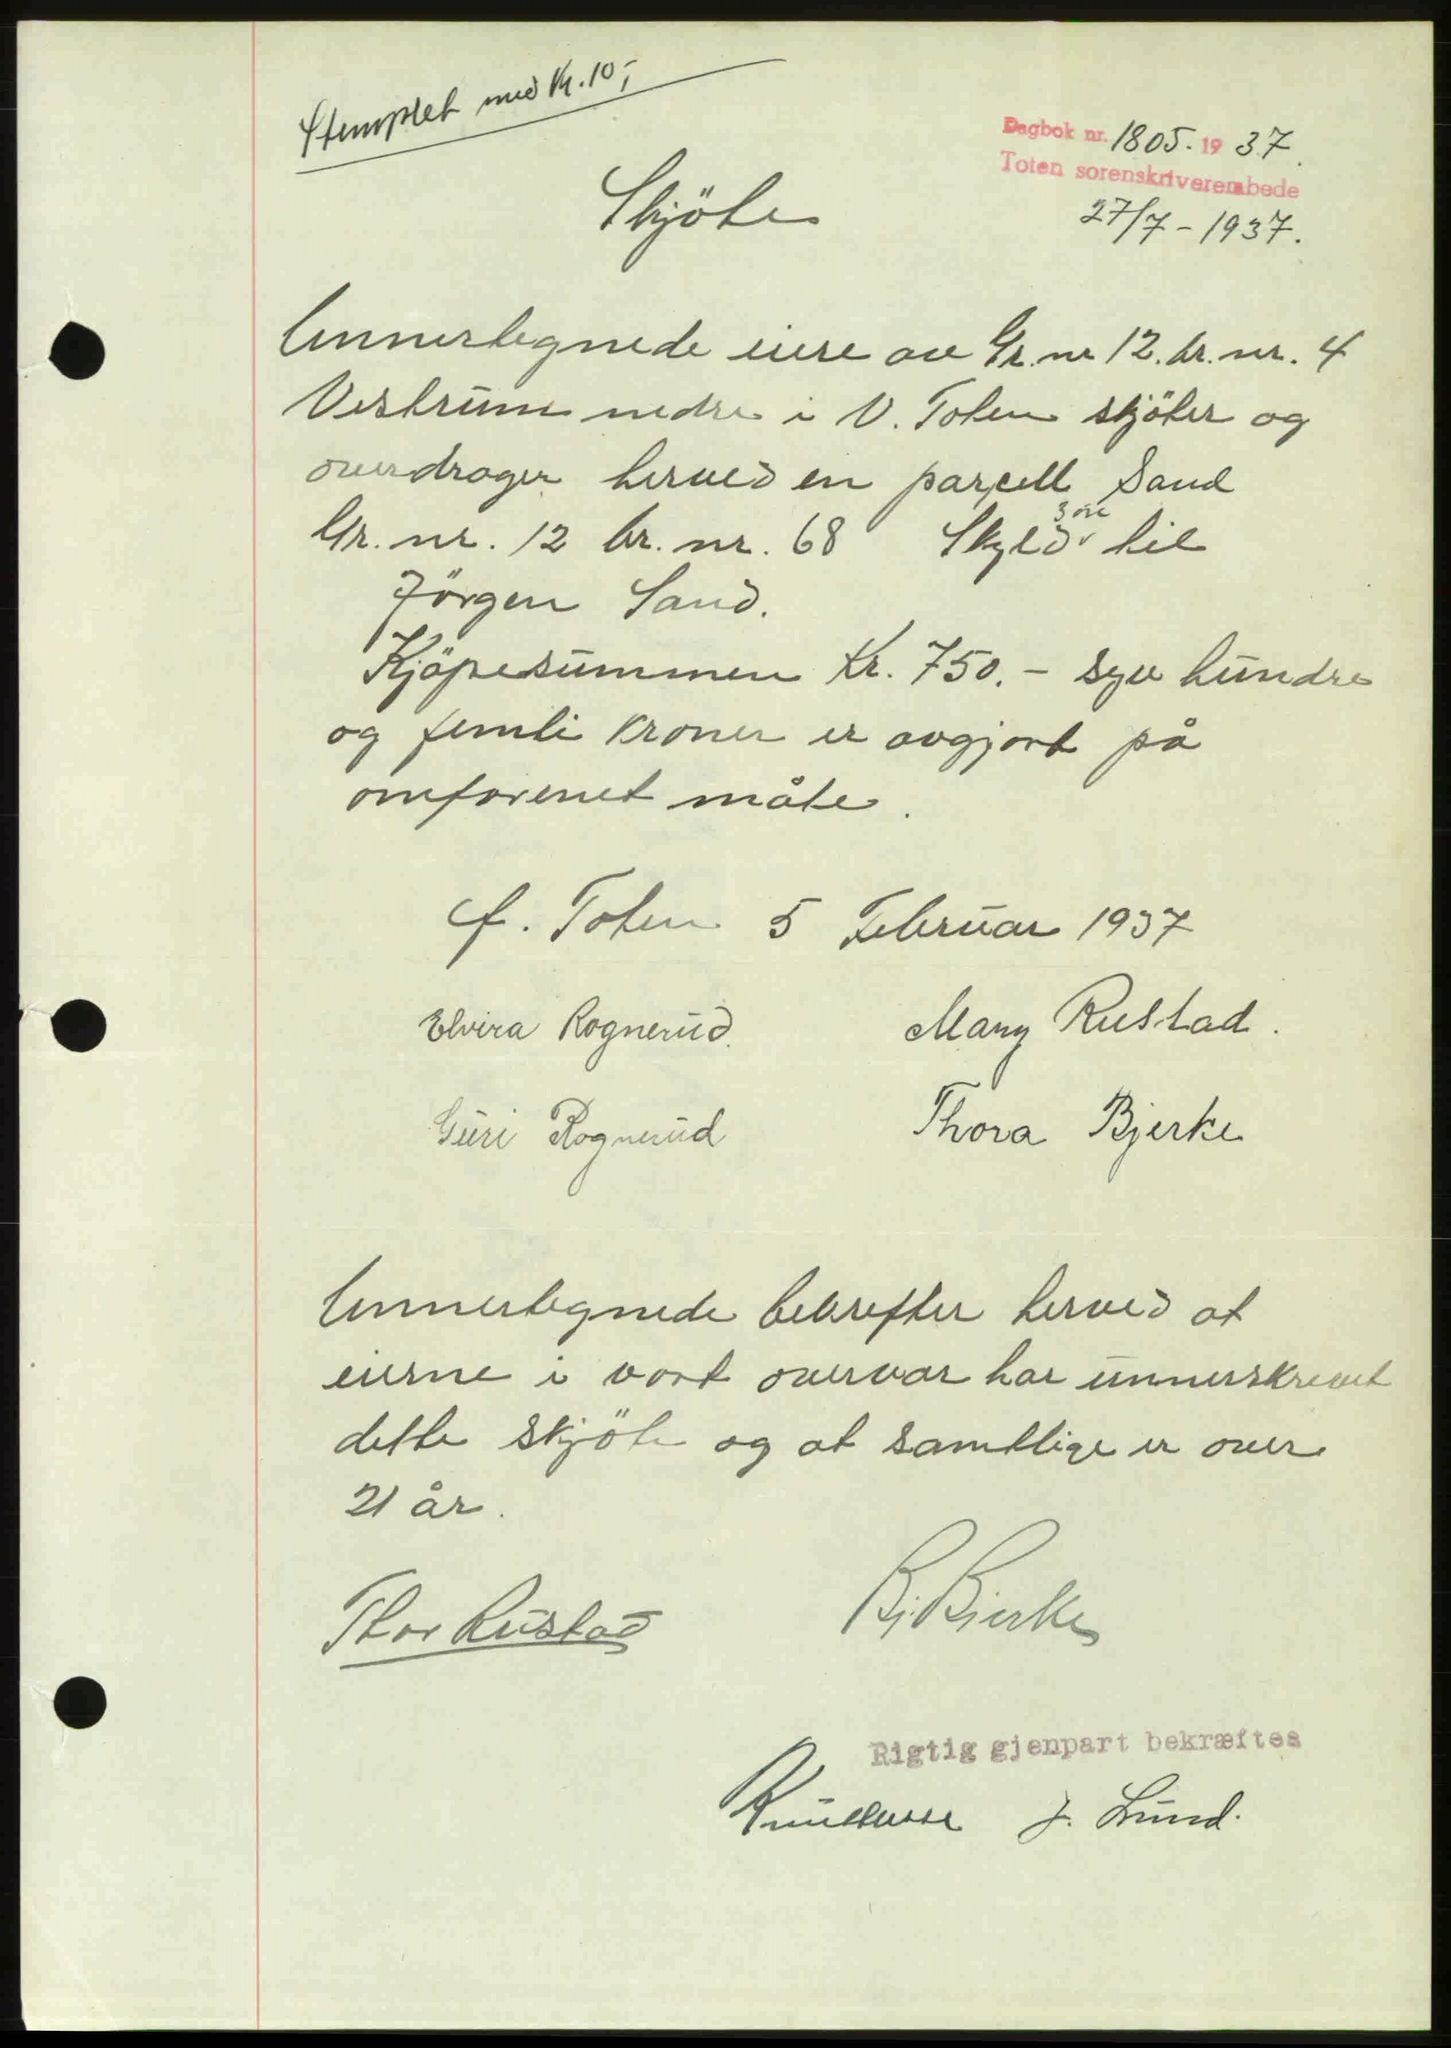 Stemplet med Kr. 10,-
Dagbok nr. 1805. 1937.
Toten sorenskriverembede
27/7 - 1937.
Skjöte
Unnertegnede eiere av Gr. nr 12. br. nr. 4
Vestrum nedre i V. Toten skjöter og
overdrager herved en parsell Sand
Gr. nr. 12 br. nr. 68 Skyld 3 øre til
Jörgen Sand.
Kjöpesummen Kr. 750.- syv hundre
og femti kroner er avgjort på
omforenet måte.
Ø. Toten 5 Februar 1937
Elvira Rognerud. Mary Rustad.
Guri Rognerud Thora Bjerke
Unnertegnede bekrefter herved at
eierne i vort overvær har unnerskrevet
dette skjöte og at samtlige er over
21 år.
Thor Rustad Bj. Bjerke
Rigtig gjenpart bekræftes
Knudssen J. Lund.